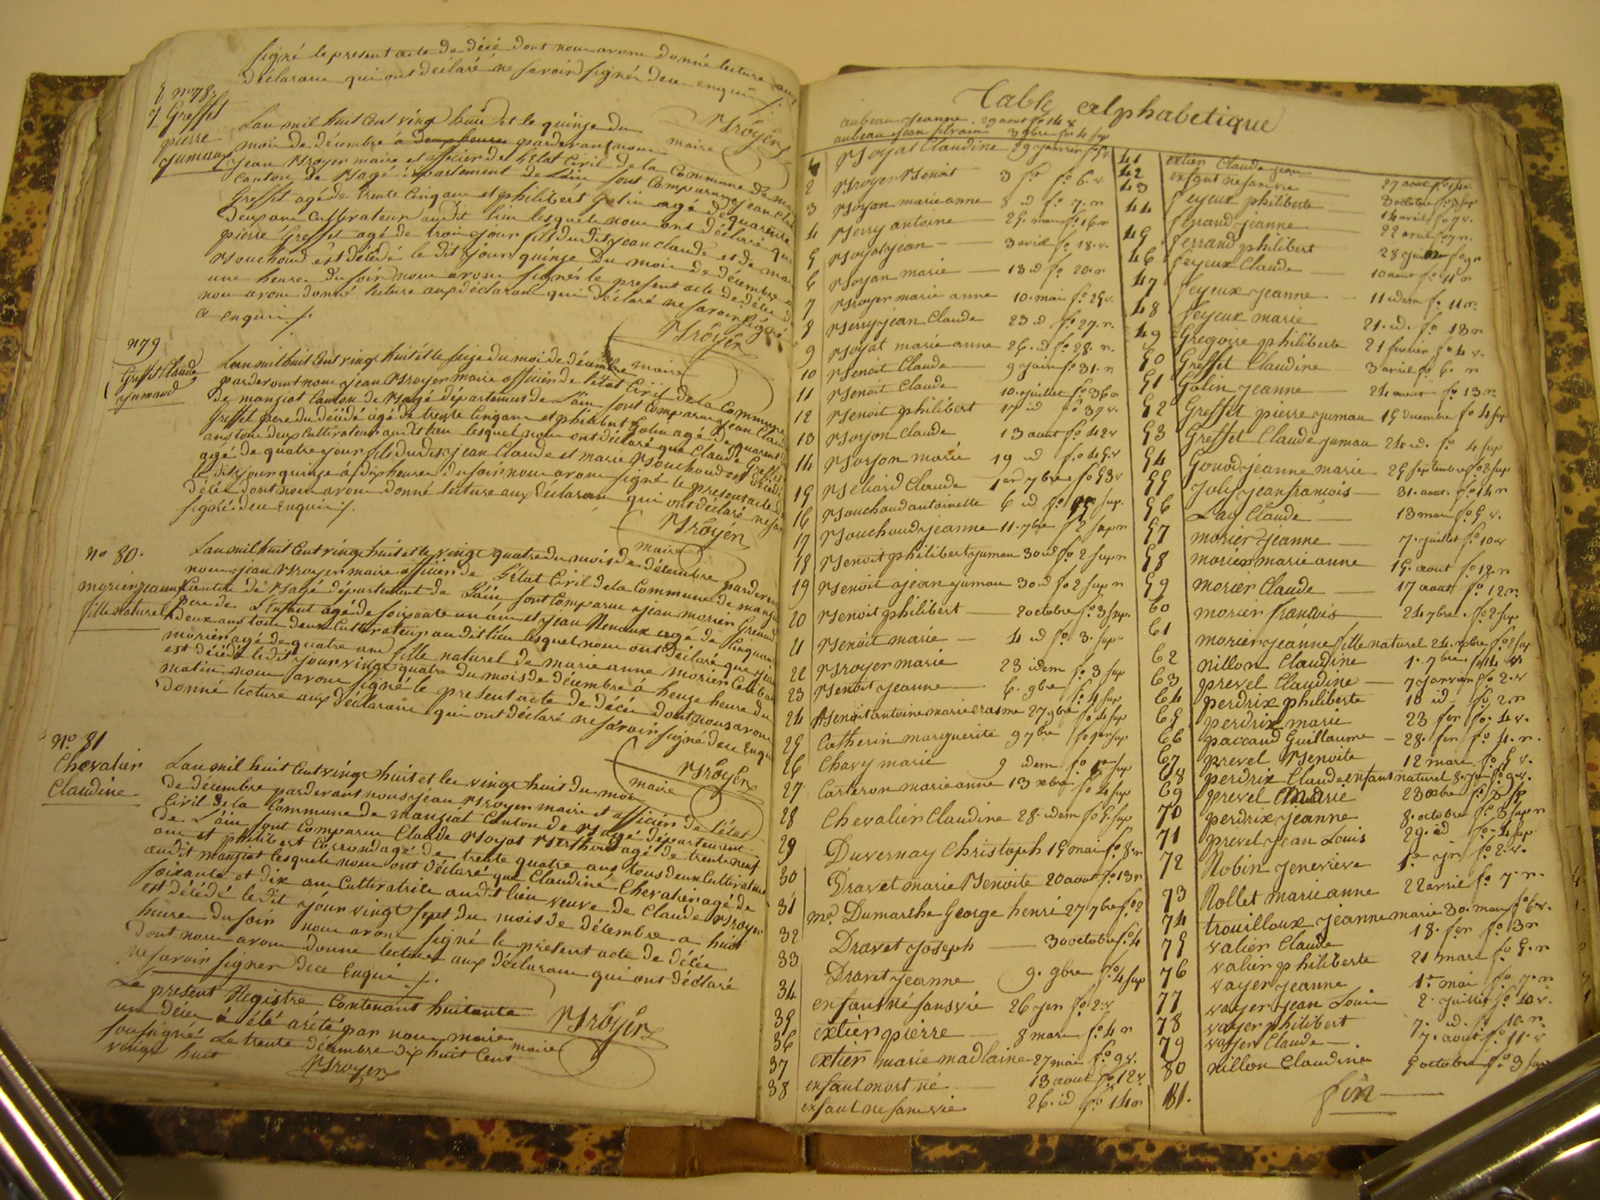 signé le present acte de décè dont nous avons donné lecture aux
déclarans qui ont déclaré ne savoir signer de ce enquis
n° 78
Greffet
pierre
jumeau
L'an mil huit cent vingt huit et le quinze du
mois de décembre à deux heures pardevant nous
jean Broyer maire et officier de l'état Civil de la Commune de
Canton de Bagé département de l'ain sont Comparus jean Claude
Greffet agé de trente Cinq ans et philibert Golin agé de quarente
deux ans Cultivateurs audit lieu lesquels nous ont déclaré que
pierre Greffet agé de trois jour fils dudit jean Claude et de marie
Bouchoud est décédé le dit jour quinze Du mois de décembre à
une heure du soir nous avons signé le present acte de décè
nous avons donné lecture aux déclarans qui déclaré ne savoir signé
ce enquis
Broyer
maire
n° 79
Greffet Claude
jumeaud
L'an mil huit Cent vingt huit et le seize du mois de décembre
pardevant nous jean Broyer maire officier de l'état Civil de la Commune
de manziat Canton de Bagé département de l'ain sont Comparus jean Claude
Greffet pere du décédé agé de trente Cinq ans et philibert Golin agé de quarente
ans tous deux Cultivateurs audit lieu lesquels nous ont déclaré que Claude Greffet
agé de quatre jour fils dudit jean Claude et marie Bouchoud est décédé
le dit jour quinze à dix heures du soir nous avons signé le present acte de
décè dont nous avons donné lecture aux déclarans qui ont déclaré ne savoir
signé de ce enquis
Broyer
maire
n° 80.
morier jeanne
fille naturel
L'an mil huit Cent vingt huit et le vingt quatre du mois de décembre pardevant
nous jean Broyer maire officier de l'état Civil de la Commune de manziat
Canton de Bagé département de l'ain sont Comparus jean morier Grand
pere de L'enfant agé de soixante un an et jean Renoux agé de Cinquante
deux ans tous deux Cultivateurs audit lieu lesquels nous ont déclaré que jeanne
morier agé de quatre ans fille naturel de marie anne morier Celibataire
est décédé le dit jour vingt quatre du mois de décembre à onze heure du
matin nous avons signé le present acte de décè dont nous avons
donné lecture aux déclarans qui ont déclaré ne savoir signé de ce enquis
Broyer
maire
N° 81
Chevalier
Claudine
L'an mil huit Cent vingt huit et les vingt huit du mois
de décembre pardevant nous jean Broyer maire et officier de l'état
Civil de la Commune de manziat Canton de Bagé département
de l'ain sont Comparus Claude Boyat Berthier agé de trente neuf
ans et philibert Corrondage de trente quatre ans tous deux Cultivateurs
audit manziat lesquels nous ont déclaré que Claudine Chevalier agé de
soixante et dix ans Cultivatrice audit lieu veuve de Claude Broyer
est décédé le dit jour vingt sept du mois de décembre à huit
heure du soir nous avons signé le present acte de décè
dont nous avons donné lecture aux déclarans qui ont déclaré
ne savoir signer de ce Enquis
Broyer
maire
Le present Registre Contenant huitante
un décè à été arété par nous maire
soussigné Le trente décembre dix huit Cent
vingt huit
Broyer
Table alphabetique
aubeau jeanne 29 aout f° 14
aubeau jean silvain 3 9bre f° 4 sup
1 Boyat Claudine 29 janvier
2 Broyer Benoit 3 f° 6 v
3 Boyon marie anne 8 id f° 7 n
4 Berry antoine 25 mars f° 16 n
5 Boyat jean 3 avril f° 18 v
6 Boyon marie 13 id f° 20 n
7 Broyer marie anne 10 mai f° 25 v
8 Berry jean Claude 23 id f° 27 n
9 Boyat marie anne 26 id f° 28 n
10 Benoit Claude 9 juin f° 31 n
11 Benoit Claude 10 juillet f° 36
12 Benoit philibert 17 id f° 37 v
13 Boyon Claude 13 aout f° 42 v
14 Boyon marie 19 id f° 45 v
15 Bebard Claude 1er 7bre f° 53 v
16 Bouchoud antoinette 6 id sup
17 Bouchoud jeanne 11 7bre f° 2 sup n
18 Benoit philibert jumau 30 id f° 2 sup n
19 Benoit jean jumau 30 id f° 2 sup n
20 Benoit philibert 2 octobre f° 3 sup
21 Benoit marie 4 id f° 3 sup
22 Broyer marie 23 idem f° 3 sup
23 Benoit jeanne 6 9bre f° 4 sup
24 Benoit antoine marie erasme 27 9bre f° 4 sup
25 Catherin marguerite 9 7bre sup
26 Chavy marie 9 idem sup
27 Carteron marie anne 13 xbre f° 4 sup
28 Chevalier Claudine 28 idem f° 5 sup
29 Duvernay Christoph 15 mai f° 8 n
30 Dravet marie Benoite 20 aout f° 13 n
31 Dumarthe George henri 27 7bre f° 2
32 Dravet joseph 30 octobre f° 4
33 Dravet jeanne 9 9bre f° 4 sup
34 enfant né sans vie 26 jen f° 2 v
35 extier pierre 8 mars f° 4 n
36 extier marie madlaine 27 mai f° 9 v
37 enfant mort né 13 aout f° 12 v
38 enfant né sans vie 26 id f° 14 n
41 extier Claude jean
42 enfant né sans vie 27 aout
43 feyeux philiberte 8 octobre
44 ferrand jeanne 14 avril
45 ferrand philibert 22 avril
46 feyeux Claude 28 juin
47 feyeux jeanne 10 aout f° 11 n
48 feyeux marie 11 idem f° 11 n
49 Gregoire philiberte 21 id f° 13 n
50 Greffet Claudine 21 fevrier f° 4 v
51 Golin jeanne 3 avril f° 6 n
52 Greffet pierre jumau 15 decembre f° 4 sup
53 Greffet Claude jumau id f° 4 sup
54 Gonod jeanne marie 25 septembre f° 2 sup
55 Joly jean francois 31 aout f° 14 n
56 Lay Claude 13 mars f° 5 v
57 morier jeanne 7 juillet f° 10 v
58 morier marie anne 15 aout f° 12 n
59 morier Claude 17 aout f° 12 n
60 morier francois 24 7bre f° 2 sup
61 morier jeanne fille naturel 24 xbre f° 5 sup
62 nillon Claudine 1 7bre f° 14 v
63 prevel Claudine 7 janvier f° 2 v
64 perdrix philiberte 10 id f° 2 n
65 perdrix marie 23 fer f° 4 v
66 paccaud Guillaume 28 fer f° 4 n
67 prevel Benoite 12 mars f° 5 v
68 perdrix Claude enfant naturel
69 prevel marie 23 octobre f° 3 sup
70 perdrix jeanne 8 octobre f° 3 sup n
71 prevel jean Louis 29 id f° 4 sup
72 Robin jenevieve 1er jen f° 2 v
73 Rollet marie anne 22 avril f° 7 n
74 trouilloux jeanne marie 30 mars f° 6 v
75 valier Claude 18 fer f° 3 n
76 valier philiberte 21 mars f° 5 n
77 vayer jeanne 1er mai f° 7 n
78 vayer jean Louis 2 juillet f° 10 v
79 vayer philibert 7 id f° 10 n
80 vayer Claude 7 aout f° 11 v
81 nillon Claudine 5 octobre f° 3 sup
fin